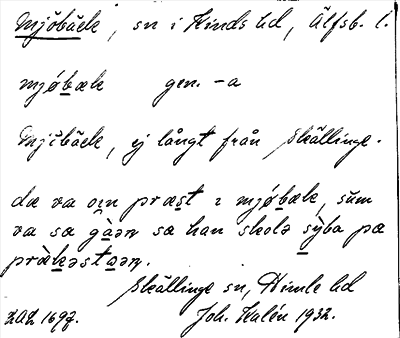 Mjöbäck, sn i Kinds hd, Älfsb. l.
mjǿbæk gen. -a
Mjöbäck, ej långt från Skällinge.
dæ va ɷɩn præst ı mjǿbæk, sum
va sæ gàəɲ sæ han skolə sỳba pæ
præ̀kəstɷəɲ.
Skällinge sn, Himle hd
ZAZ 1697. Joh. Kalén 1932.